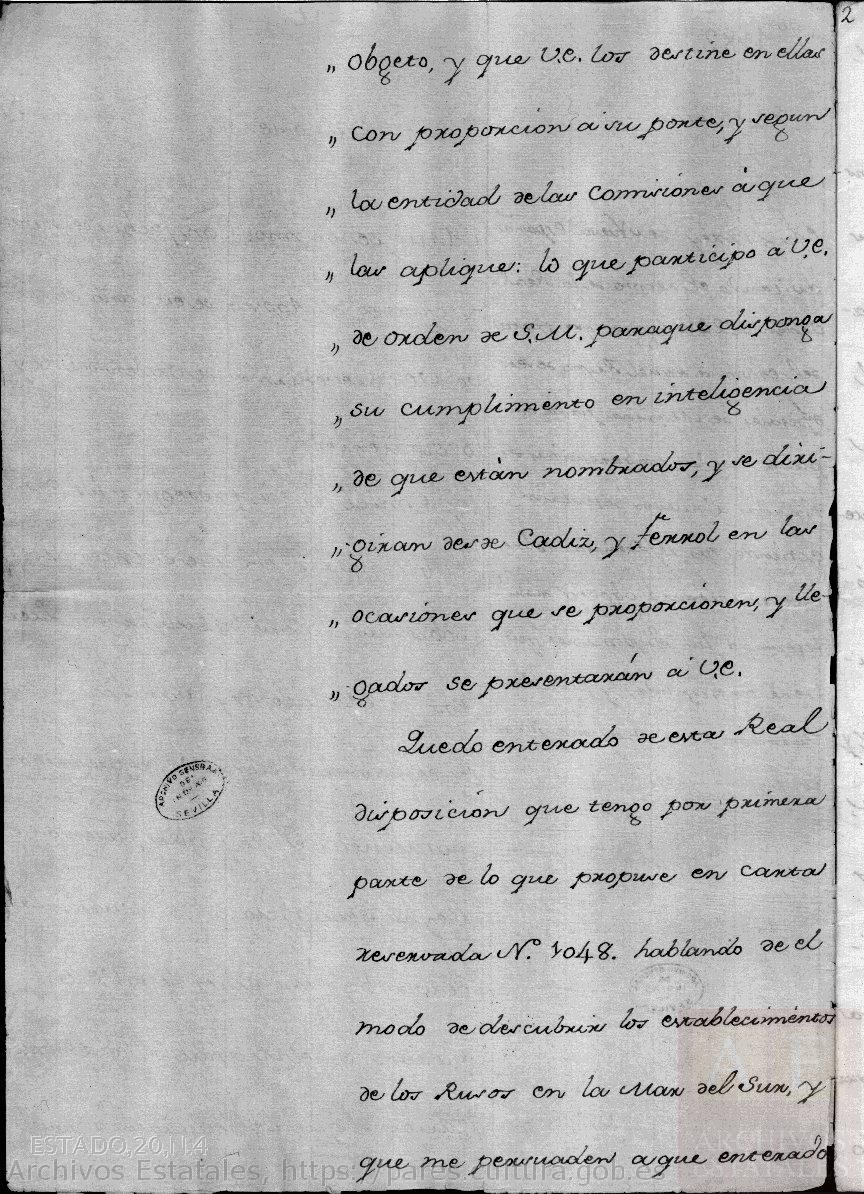 2
„ obgeto, y que V.E. los destine en ellas
„ con proporcion a su porte, y segun
„ la entidad de las Comisiónes à que
„ las aplique: lo que participo a V.E.
„ de orden de S.M. paraque disponga
„ su cumplimiento en inteligencia
„ de que están nombrados, y se diri-
„ giran desde Cadiz, y Ferrol en las
„ ocasiónes que se proporciónen, y lle-
„ gados se presentarán a V.E.
Quedo enterado de esta Real
disposición que tengo por primera
parte de lo que propuse en carta
reservada N.º 1048. hablando de el
modo de descubrir los establecimientos
de los Rusos en la Mar del Sur, y
que me persuaden a que enterado
ARCHIVO GENERAL
DE
INDIAS
SEVILLA
ESTADO,20,N.4
Archivos Estatales, https://pares.cultura.gob.es